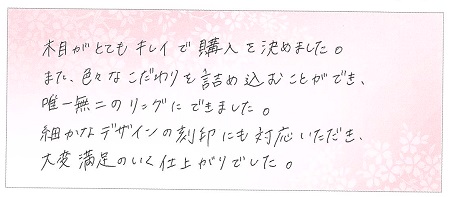 木目がとてもキレイで購入を決めました。
また、色々なこだわりを詰め込むことができ、
唯一無二のリングにできました。
細かなデザインの刻印にも対応いただき、
大変満足のいく仕上がりでした。